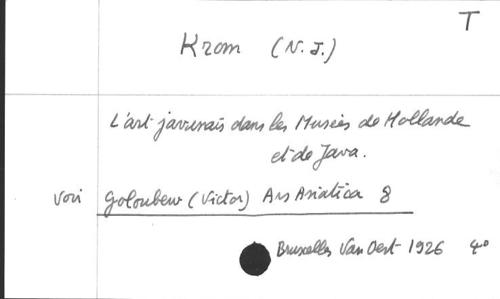 T
Krom (N. J.)
L'art javanais dans les Musées de Hollande
et de Java.
voir Goloubew (Victor) Ars Asiatica 8
Bruxelles Van Oest 1926 4°